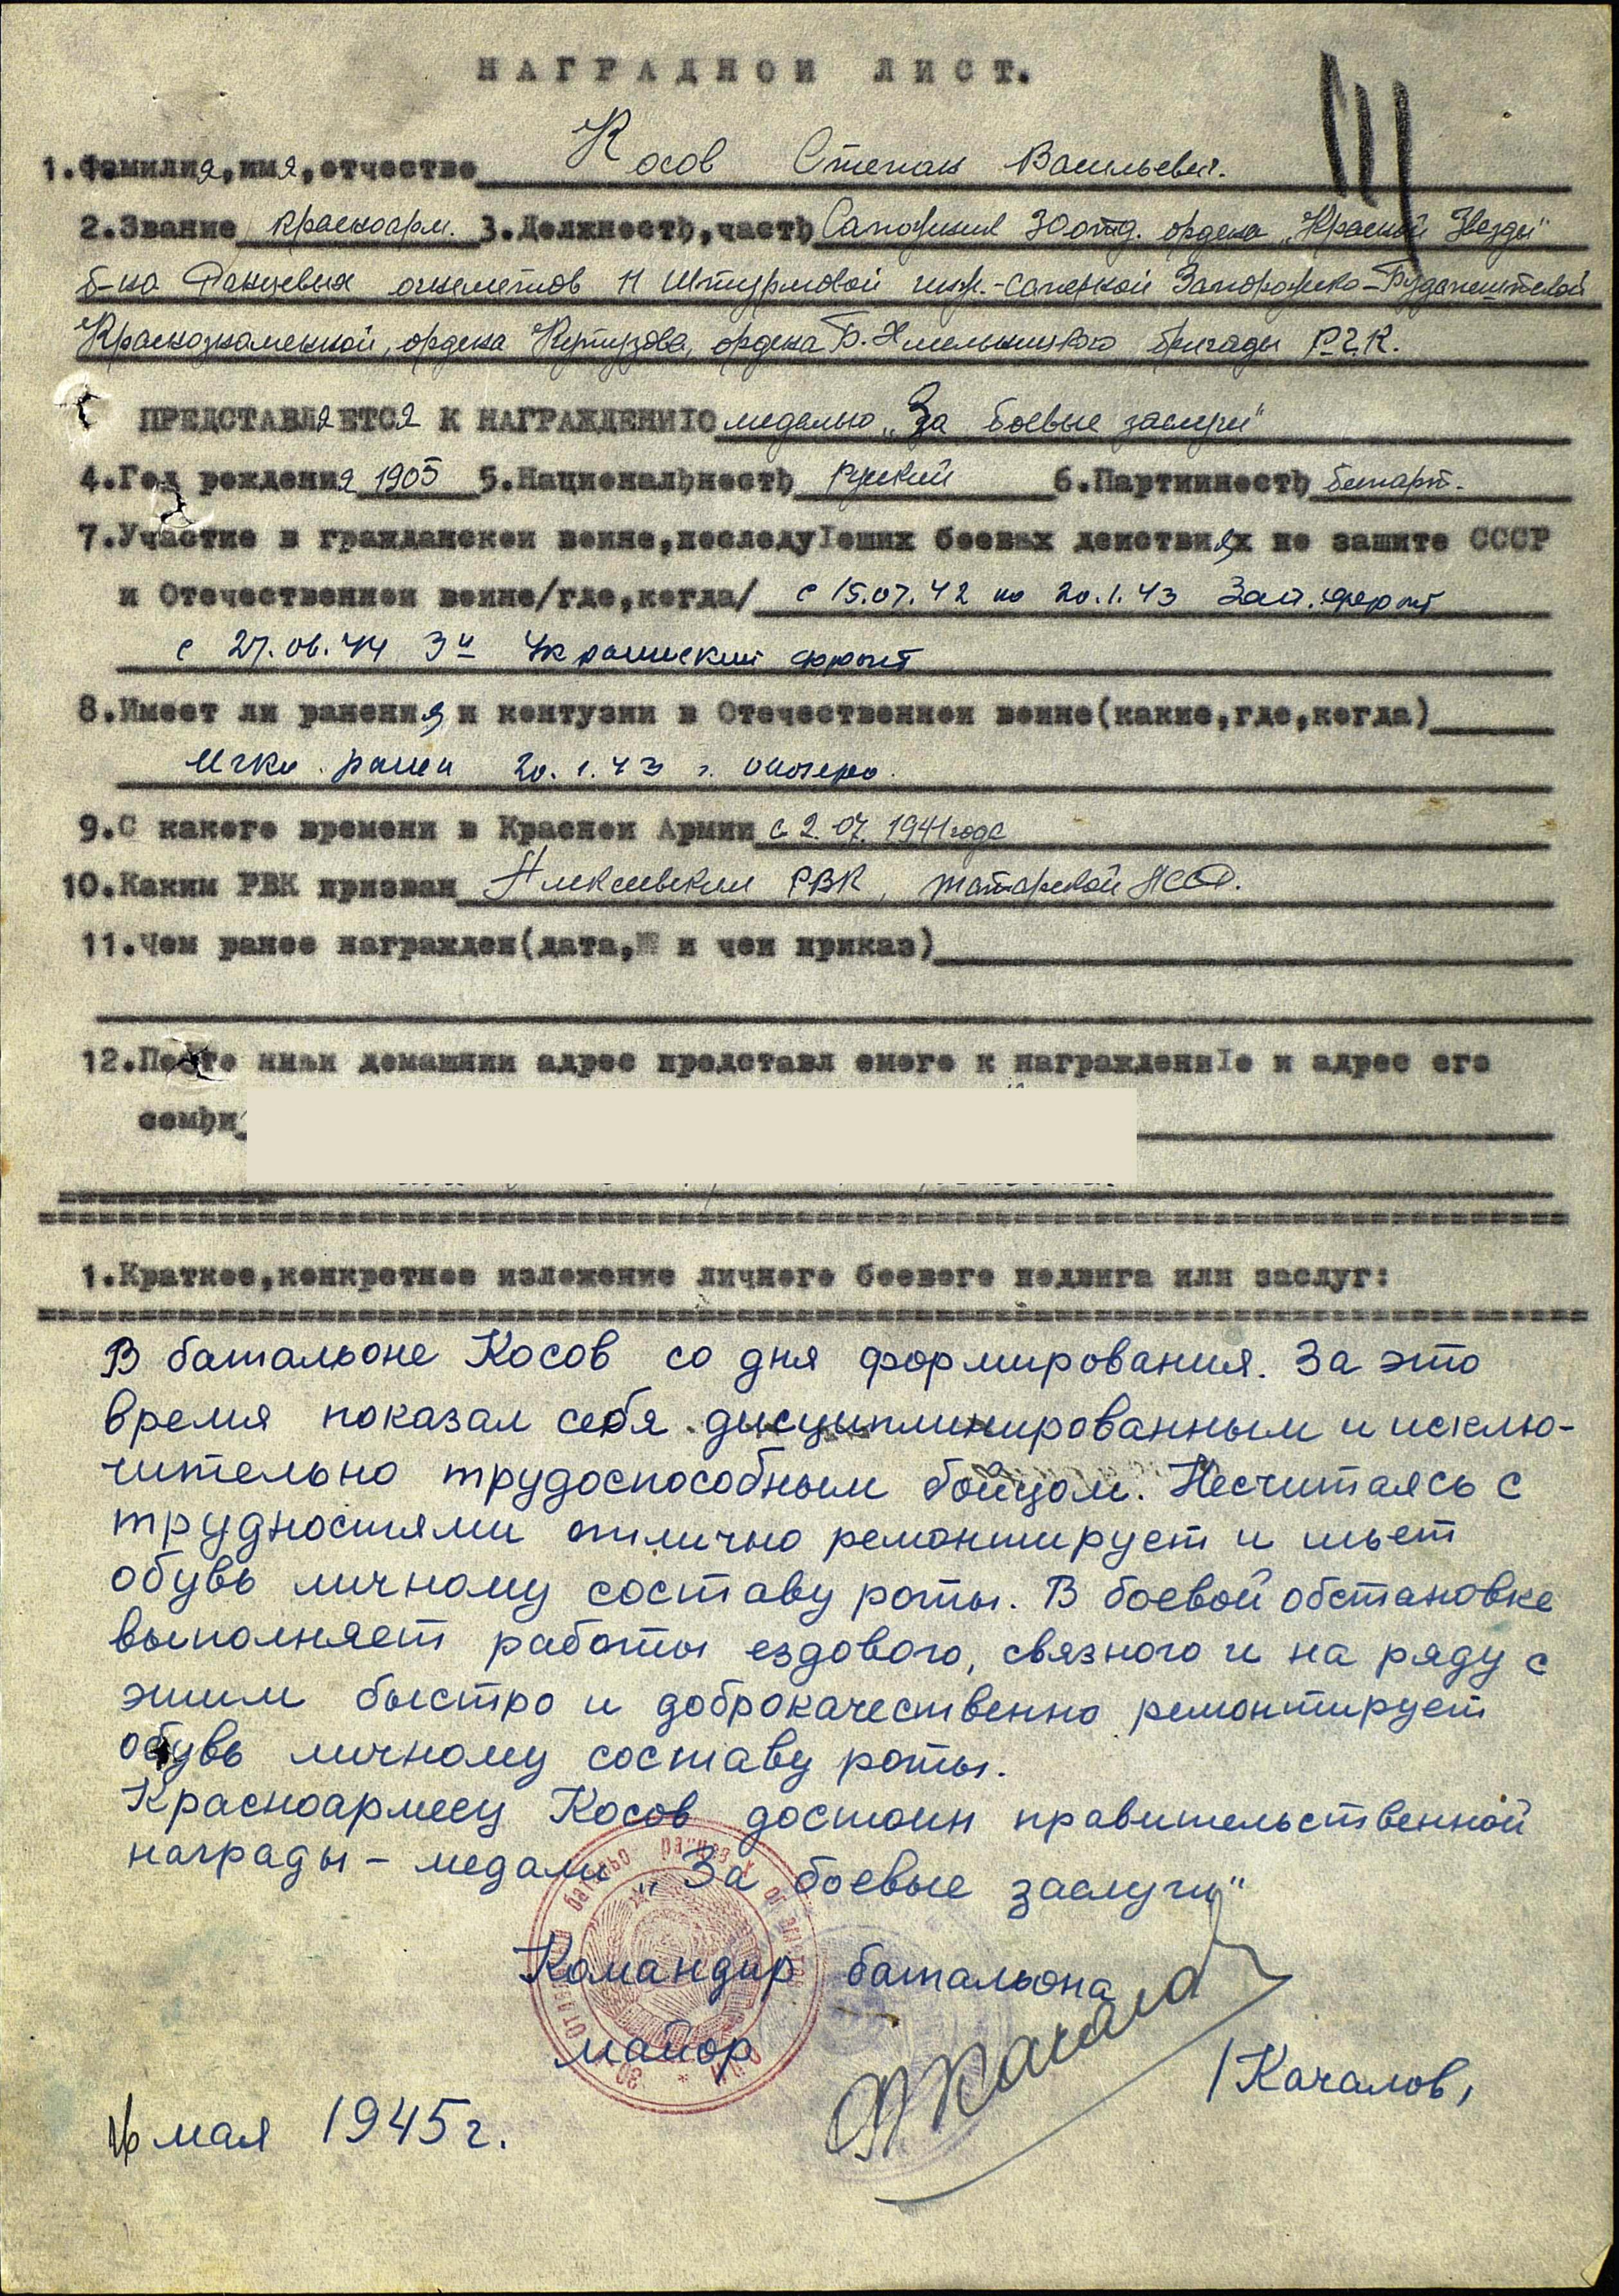 НАГРАДНОИ ЛИСТ.
1.Фамилия,имя,отчество Косов Степан Васильевич.
2.Звание красноарм. 3.Должностђ,частђ Сапожник 30 отд. ордена „Красной Звезды"
б-на Ранцевых огнеметов 11 Штурмовой инж.-саперной Запорожско-Будапештской
Краснознаменной, ордена Кутузова, ордена Б. Хмельницкого бригады Р.Г.К.
ПРЕДСТАВЛЯЕТСЯ К НАГРАЖДЕНИIО медалью „За боевые заслуги"
4.Год рождения 1905 5.Националђностђ Русский 6.Партииностђ беспарт.
7.Участие в гражданскои воине,последуIоших боевых деиствиях по зашите СССР
и Отечественнои воине/где,когда/ с 15.07.42 по 20.1.43 Зап. фронт
с 27.06.44 3й Украинский фронт
8.Имеет ли ранения и контузии в Отечественнои воине(какие,где,когда)
Легко ранен 20.1.43 г.
9.С какого времени в Краснои Армии с 2.07.1941 года
10.Каким РВК призван Алексеевским РВК, Татарской АССР.
11.Чем ранее награжден(дата,№ и чеи приказ)
12.Посто нныи домашнии адрес представл емого к награждениIо и адрес его
семђи
1.Краткое,конкретное изложение личного боевого подвига или заслуг:
В батальоне Косов со дня формирования. За это
время показал себя дисциплинированным и исклю-
чительно трудоспособным бойцом. Несчитаясь с
трудностями отлично ремонтирует и шьет
обувь личному составу роты. В боевой обстановке
выполняет работы ездового, связного и на ряду с
этим быстро и доброкачественно ремонтирует
обувь личному составу роты.
Красноармеец Косов достоин правительственной
награды – медали „За боевые заслуги"
Командир батальона
майор
/Качалов/
16 мая 1945 г.